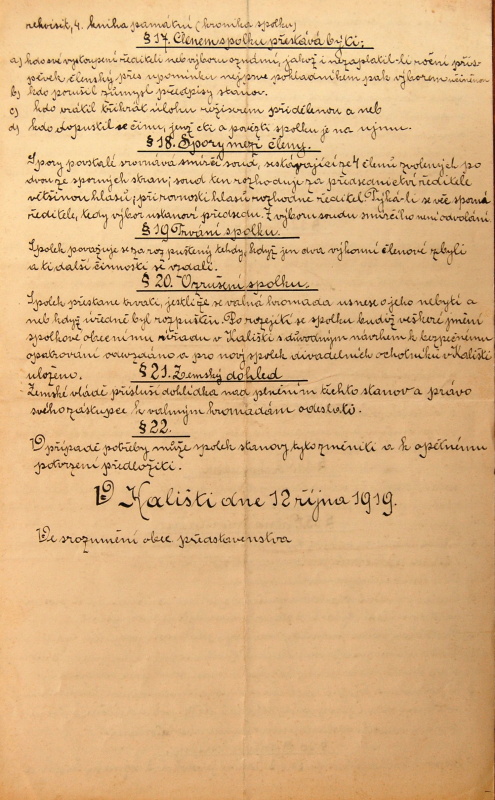 rekvisit, 4. kniha památní (kronika spolku)
§ 17. Členem spolku přestává býti:
a) kdo své vystoupení řediteli neb výboru oznámí, jakož i nezaplatil-li roční přís-
pěvek členský přes upomínku nejprve pokladníkem pak výborem učiněnou
b) kdo porušil zúmysl předpisy stanov.
c) kdo vrátil třikrát úlohu režisérem přidělenou a neb
d) kdo dopustil se činu, jenž cti a pověsti spolku je na ujmu.
§ 18. Spory mezi členy.
Spory povstalé srovnává smírčí soud, sestávající ze 4 členů zvolených po
dvou ze sporných stran; soud ten rozhoduje za předsednictví ředitele
většinou hlasů; při rovnosti hlasů rozhodne ředitel. Týká-li se věc sporná
ředitele, tedy výbor ustanoví předsedu. Z výboru soudu smírčího není odvolání.
§ 19 Trvání spolku.
Spolek považuje se za rozpuštěný tehdy, když jen dva výkonní členové zbyli
a ti další činnosti se vzdali.
§ 20. Vzrušení spolku.
Spolek přestane trvati, jestliže se valná hromada usnese o jeho nebytí a
neb když úředně byl rozpuštěn. Po rozejití se spolku budiž veškeré jmění
spolkové obecnímu úřadu v Kališti s důvodným návrhem k bezpečnému
opatrování odevzdáno a pro nový spolek divadelních ochotníků v Kališti
uloženo.
§ 21. Zemský dohled
Zemské vládě přísluší dohlídka nad plněním těchto stanov a právo
svého zástupce k valným hromadám odeslati.
§ 22.
V případě potřeby může spolek stanovy tyto změniti a k opětnému
potvrzení předložiti.
V Kališti dne 12 října 1919.
Ve srozumění obec. představenstva